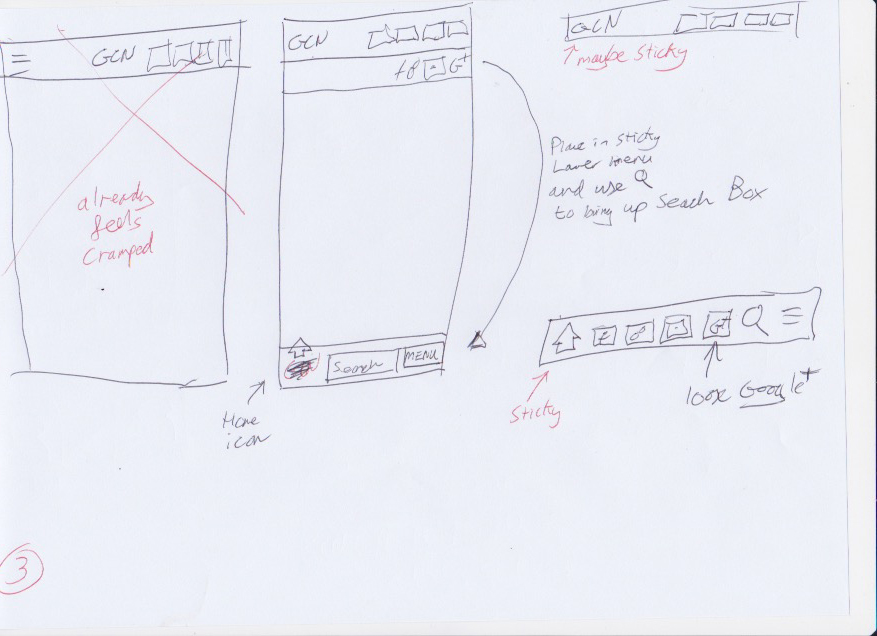 GCN
already
feels
cramped
GCN
G+
Search
MENU
Home
icon
GCN
maybe sticky
Place in sticky
Lower menu
and use
to bring up Search Box
G+
Sticky
Google+
3